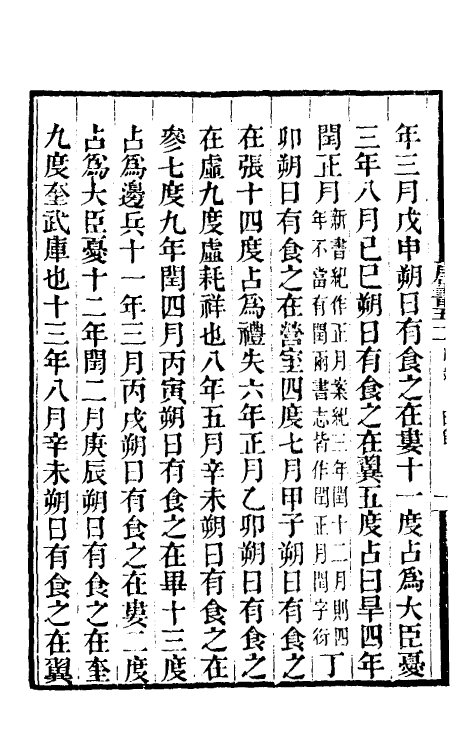 年三月戊申朔日有食之在婁十一度占爲大臣憂
三年八月己巳朔日有食之在翼五度占曰旱四年
閏正月新書紀作正月案紀三年閏十二月則四年不當有閏兩書志皆作閏正月閏字衍丁
卯朔日有食之在營室四度七月甲子朔日有食之
在張十四度占爲禮失六年正月乙卯朔日有食之
在虛九度虛耗祥也八年五月辛未朔日有食之在
參七度九年閏四月丙寅朔日有食之在畢十三度
占爲邊兵十一年三月丙戌朔日有食之在婁二度
占爲大臣憂十二年閏二月庚辰朔日有食之在奎
九度奎武庫也十三年八月辛未朔日有食之在翼